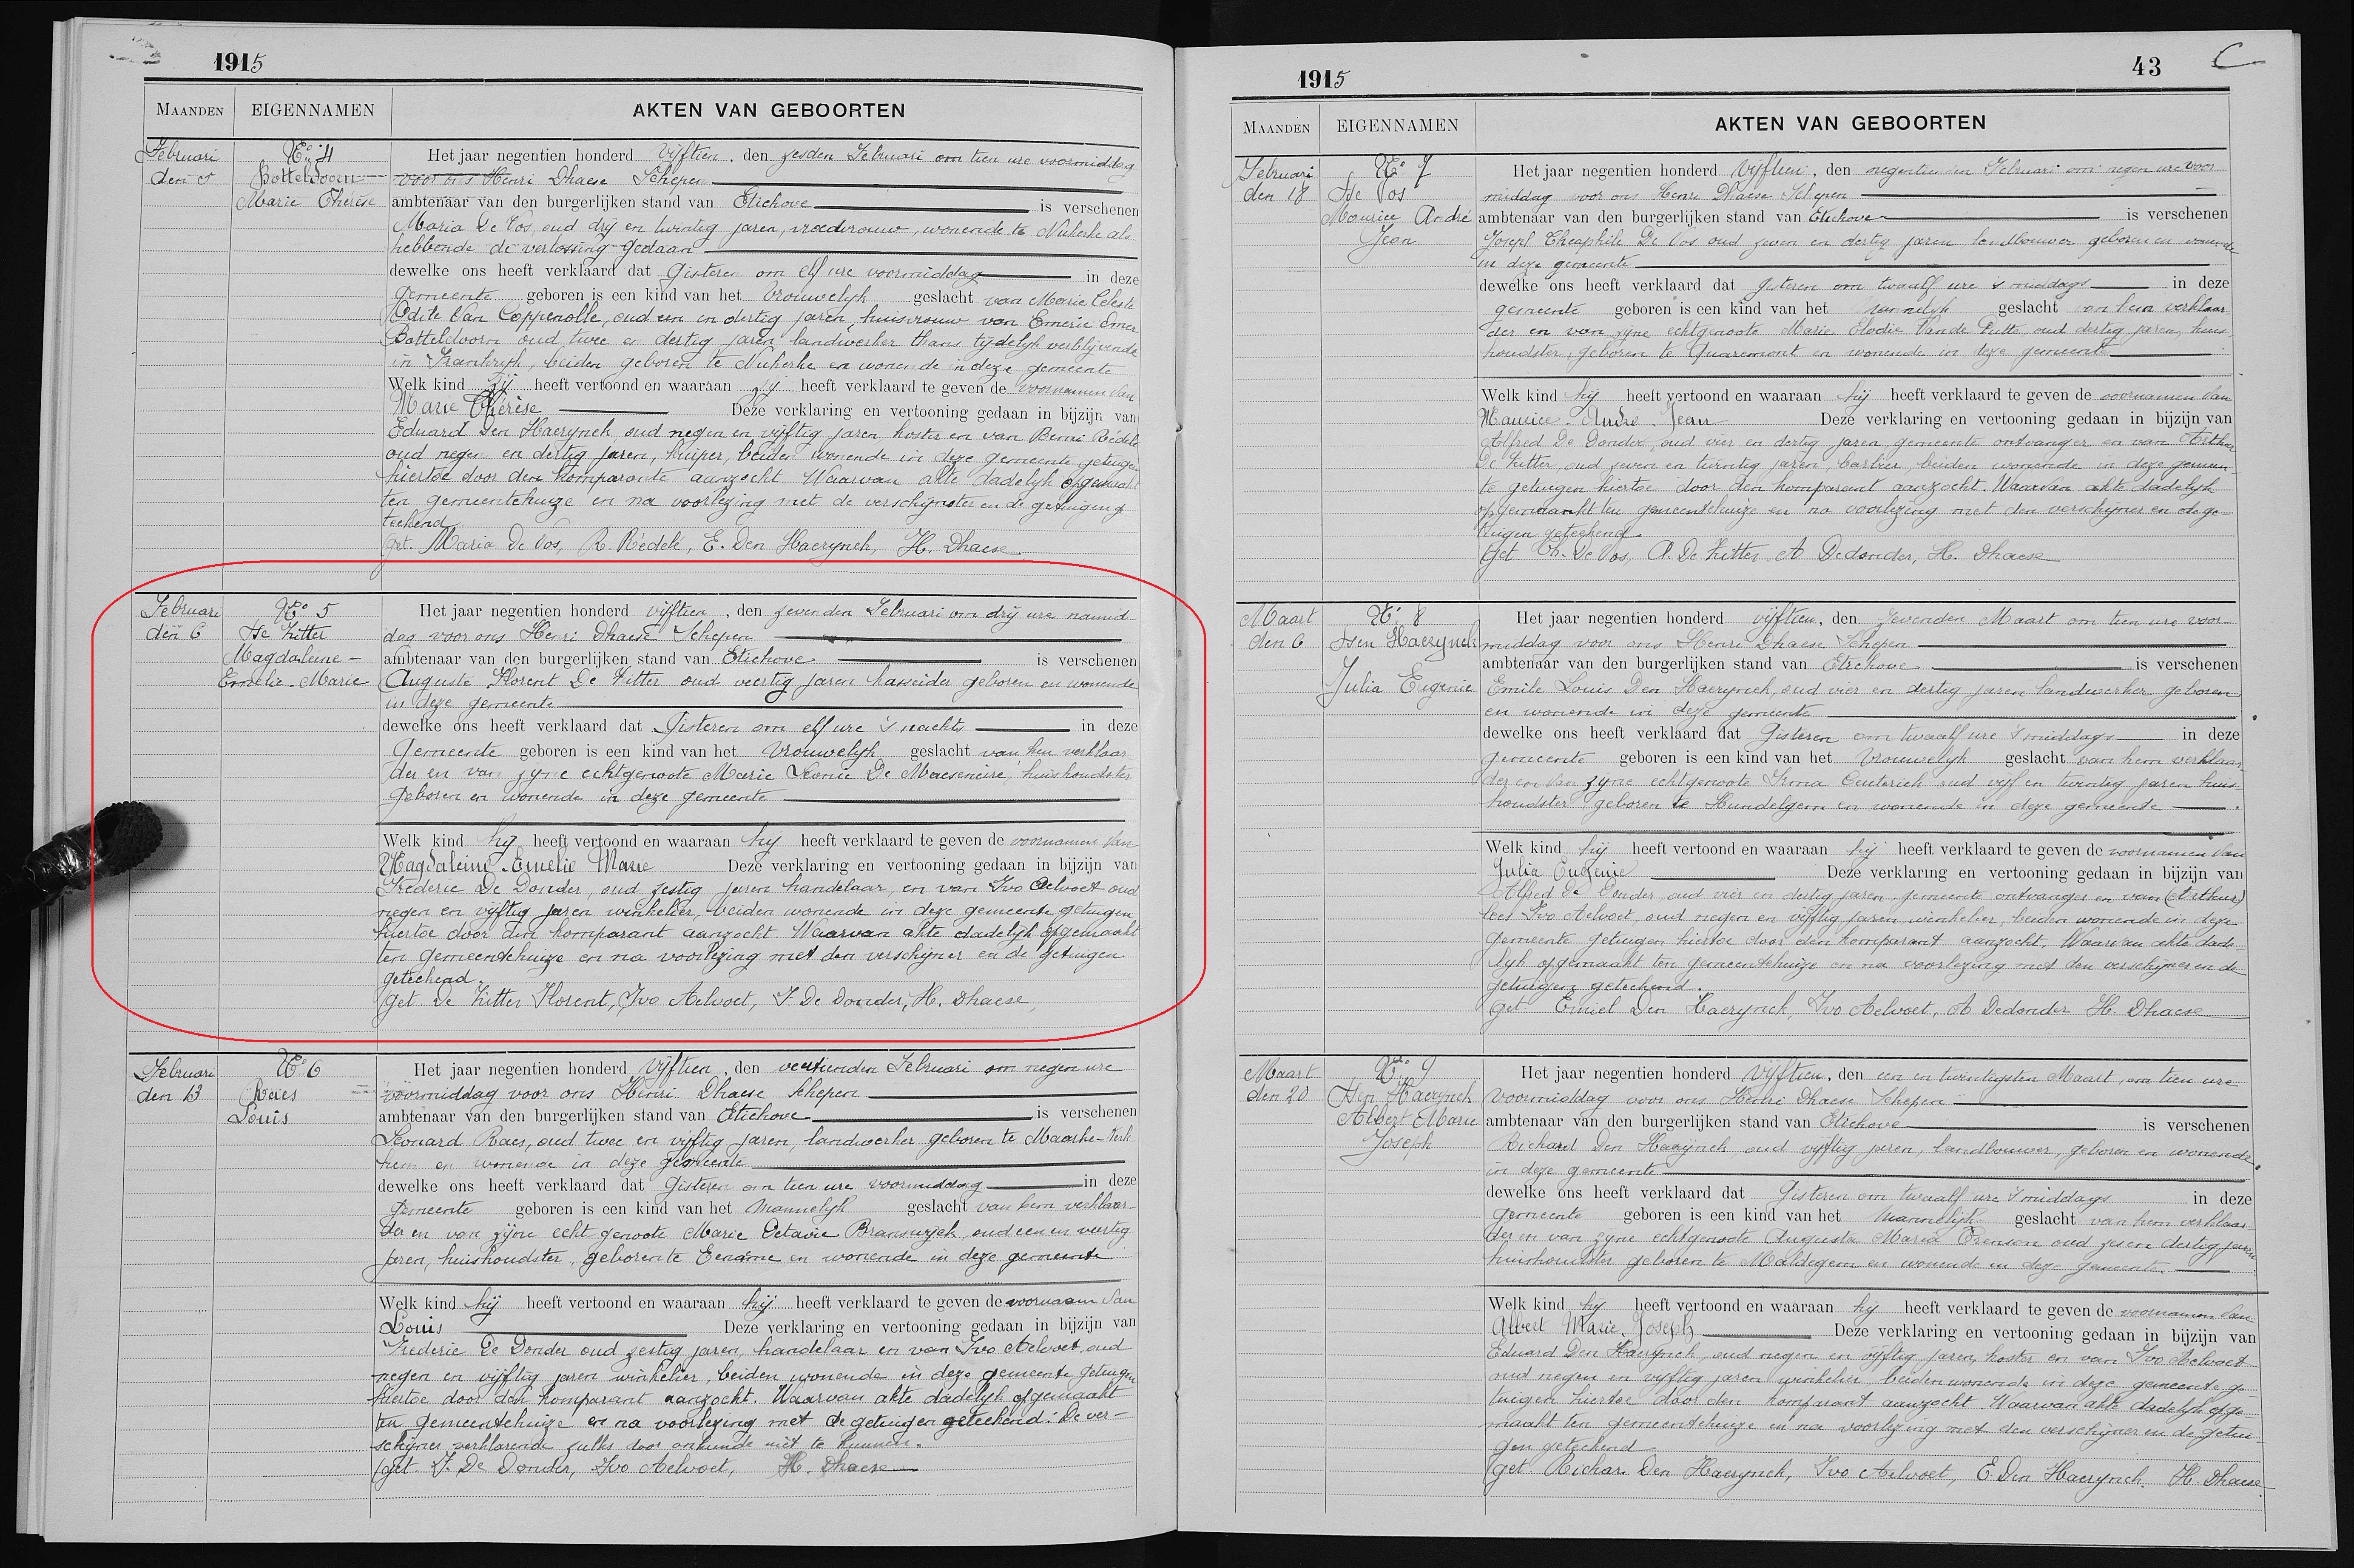 1915
MAANDEN EIGENNAMEN AKTEN VAN GEBOORTEN
Februari
den 5
No 4
Botteldoorn
Marie Thérèse
Het jaar negentien honderd vijftien, den zesden Februari om tien ure voormiddag
voor ons Henri Dhaese Schepen
ambtenaar van den burgerlijken stand van Etichove is verschenen
Maria De Vos, oud drij en twintig jaren, vroedvrouw, wonende te Nukerke als
hebbende de verlossing gedaan
dewelke ons heeft verklaard dat Gisteren om elf ure voormiddag in deze
gemeente geboren is een kind van het Vrouwelijk geslacht van Marie Celeste
Odile Van Coppenolle, oud een en dertig jaren, huisvrouw van Emeric Omer
Botteldoorn oud twee en dertig jaren landwerker thans tijdelijk verblijvende
in Frankrijk, beiden geboren te Nukerke en wonende in deze gemeente
Welk kind zij heeft vertoond en waaraan zij heeft verklaard te geven de voornamen van
Marie Thérèse Deze verklaring en vertooning gedaan in bijzijn van
Eduard Den Haerynck oud negen en vijftig jaren, koster en van Remi Rédelé
oud negen en dertig jaren, kuiper, beiden wonende in deze gemeente getuigen
hiertoe door den komparante aanzocht Waarvan akte dadelijk opgemaakt
ten gemeentehuize en na voorlezing met de verschijnster en de getuigen ge
teekend
get. Maria De Vos, R. Rédelé, E. Den Haerynck, H. Dhaese
Februari
den 6
No 5
De Zitter
Magdaleine -
Emelie - Marie
Het jaar negentien honderd vijftien, den zevenden Februari om drij ure namid-
dag voor ons Henri Dhaese Schepen
ambtenaar van den burgerlijken stand van Etichove is verschenen
Auguste Florent De Zitter oud veertig jaren kasseider geboren en wonende
in deze gemeente
dewelke ons heeft verklaard dat Gisteren om elf ure 's nachts in deze
Gemeente geboren is een kind van het Vrouwelijk geslacht van hem verklaar
der en van zijne echtgenoote Marie Leonie De Maeseneire, huishoudster
Geboren en wonende in deze gemeente
Welk kind hij heeft vertoond en waaraan hij heeft verklaard te geven de voornamen van
Magdaleine Emelie Marie Deze verklaring en vertooning gedaan in bijzijn van
Frederic De Donder, oud zestig jaren handelaar, en van Ivo Aelvoet oud
negen en vijftig jaren winkelier, beiden wonende in deze gemeente getuigen
hiertoe door den komparant aanzocht Waarvan akte dadelijk opgemaakt
ten gemeentehuize en na voorlezing met den verschijner en de getuigen
geteekend.
get. De Zitter Florent, Ivo Aelvoet, F. De Donder, H. Dhaese
Februari
den 13
No 6
Raes
Louis
Het jaar negentien honderd Vijftien, den veertienden Februari om negen ure
voormiddag voor ons Henri Dhaese Schepen
ambtenaar van den burgerlijken stand van Etichove is verschenen
Leonard Raes, oud twee en vijftig jaren, landwerker geboren te Maarke-Kerk
hem en wonende in deze gemeente
dewelke ons heeft verklaard dat Gisteren om tien ure voormiddag in deze
gemeente geboren is een kind van het Mannelijk geslacht van hem verklaar-
der en van zijne echtgenoote Marie Octavie Branswyck, oud een en veertig
jaren, huishoudster, geboren te Eename en wonende in deze gemeente
Welk kind hij heeft vertoond en waaraan hij heeft verklaard te geven de voornaam van
Louis Deze verklaring en vertooning gedaan in bijzijn van
Frederic De Donder oud zestig jaren, handelaar en van Ivo Aelvoet, oud
negen en vijftig jaren winkelier, beiden wonende in deze gemeente getuigen
hiertoe door den komparant aanzocht. Waarvan akte dadelijk opgemaakt
ten gemeentehuize en na voorlezing met de getuigen geteekend: De ver-
schijner verklarende zulks door onkunde niet te kunnen.
get. F. De Donder, Ivo Aelvoet, H. Dhaese
1915 43 C
MAANDEN EIGENNAMEN AKTEN VAN GEBOORTEN
Februari
den 18
No 7
De Vos
Maurice André
Jean
Het jaar negentien honderd Vijftien, den negentienden Februari om negen ure voor
middag voor ons Henri Dhaese Schepen
ambtenaar van den burgerlijken stand van Etichove is verschenen
Joseph Theophile De Vos oud zeven en dertig jaren landbouwer geboren en wonende
in deze gemeente
dewelke ons heeft verklaard dat Gisteren om twaalf ure 's middags in deze
gemeente geboren is een kind van het Mannelijk geslacht van hem verklaar
der en van zijne echtgenoote Marie Elodie Vande Putte, oud dertig jaren, huis
houdster, geboren te Quaremont en wonende in deze gemeente
Welk kind hij heeft vertoond en waaraan hij heeft verklaard te geven de voornamen van
Maurice. André. Jean Deze verklaring en vertooning gedaan in bijzijn van
Alfred De Donder, oud vier en dertig jaren, gemeente ontvanger en van Arthur
De Zitter, oud zeven en twintig jaren, barbier, beiden wonende in deze gemeen
te getuigen hiertoe door den komparant aanzocht. Waarvan akte dadelijk
opgemaakt ten gemeentehuize en na voorlezing met den verschijner en de ge-
tuigen geteekend.
get Th. De Vos, A. De Zitter, A Dedonder, H. Dhaese
Maart
den 6
No 8
Den Haerynck
Julia Eugenie
Het jaar negentien honderd vijftien, den zevenden Maart om tien ure voor-
middag voor ons Henri Dhaese Schepen
ambtenaar van den burgerlijken stand van Etichove is verschenen
Emile Louis Den Haerynck, oud vier en dertig jaren landwerker geboren
en wonende in deze gemeente
dewelke ons heeft verklaard dat Gisteren om twaalf ure 's middags in deze
gemeente geboren is een kind van het Vrouwelijk geslacht van hem verklaar-
der en van zijne echtgenoote Irma oud vijf en twintig jaren huis-
houdster, geboren te Hundelgem en wonende in deze gemeente
Welk kind hij heeft vertoond en waaraan hij heeft verklaard te geven de voornamen van
Julia Eugenie Deze verklaring en vertooning gedaan in bijzijn van
Alfred De Donder, oud vier en dertig jaren, gemeente ontvanger en van (Arthur)
lees Ivo Aelvoet, oud negen en vijftig jaren, winkelier, beiden wonende in deze
gemeente getuigen hiertoe door den komparant aanzocht, Waarvan akte dade-
lijk opgemaakt ten gemeentehuize en na voorlezing met den verschijner en de
getuigen geteekend.
get. Emiel Den Haerynck, Ivo Aelvoet, A Dedonder H. Dhaese
Maart
den 20
No 9
Den Haerynck
Albert Marie
Joseph
Het jaar negentien honderd Vijftien, den een en twintigsten Maart, om tien ure
voormiddag voor ons Henri Dhaese Schepen
ambtenaar van den burgerlijken stand van Etichove is verschenen
Richard Den Haerynck oud vijftig jaren, landbouwer, geboren en wonende
in deze gemeente
dewelke ons heeft verklaard dat Gisteren om twaalf ure 's middags in deze
gemeente geboren is een kind van het Mannelijk geslacht van hem verklaar
der en van zijne echtgenoote Augusta Maria oud zes en dertig jaren
huishoudster geboren te Maldegem en wonende in deze gemeente.
Welk kind hij heeft vertoond en waaraan hij heeft verklaard te geven de voornamen van
Albert Marie. Joseph Deze verklaring en vertooning gedaan in bijzijn van
Eduard Den Haerynck, oud negen en vijftig jaren, koster en van Ivo Aelvoet
oud negen en vijftig jaren winkelier beiden wonende in deze gemeente ge
tuigen hiertoe door den komparant aanzocht. Waarvan akte dadelijk opge-
maakt ten gemeentehuize en na voorlezing met den verschijner en de getui-
gen geteekend
get. Richard Den Haerynck, Ivo Aelvoet, E. Den Haerynck. H. Dhaese